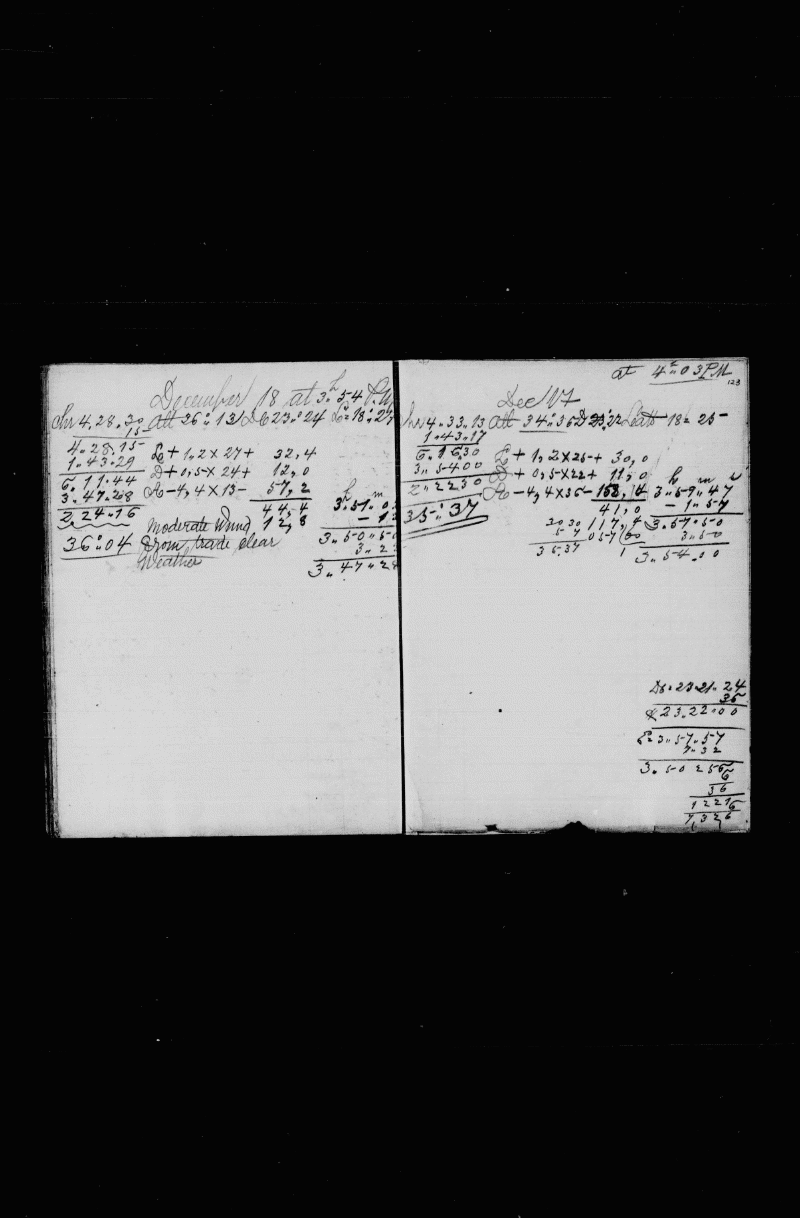 December 18 at 3h.54 P.M
Chr 4.28.30 alt 26°.13' D 23.°24 L= 18°.27
15
4.28.15-
1.43.29
L + 1,2 X 27 + 32,4
6.11.44
D + 0,5 X 24 + 12,0
3.47.28
A - 4,4 X 13 - 57,2
2.24.16
44,4
12,8
36°.04
Moderate Wind
From trade clear
Weather
h m
3.51.0
- 1
3.50.5
3.2
3.47.28
at 4h.03 PM
123
Dec 17
Chr 4.33.13 alt 34°.36 D 23.22 Latt 18= 25-
1.43.17
6.16.30
L + 1,2 X 25 + 30,0
3.54.00
D + 0,5 X 22 + 11,0
2.22.30
A - 4,4 X 36 - 158,4
35°.37
41,0
117,4
h m
3.59.47
- 1.57
3.57.50
3.50
3.54.00
30 30
5 7
35.37
057 (60
1
D 6.23.21.24
36
23.22.00
3.57.57
7.32
3.50 25
6
36
1221 6
7,3 2 6